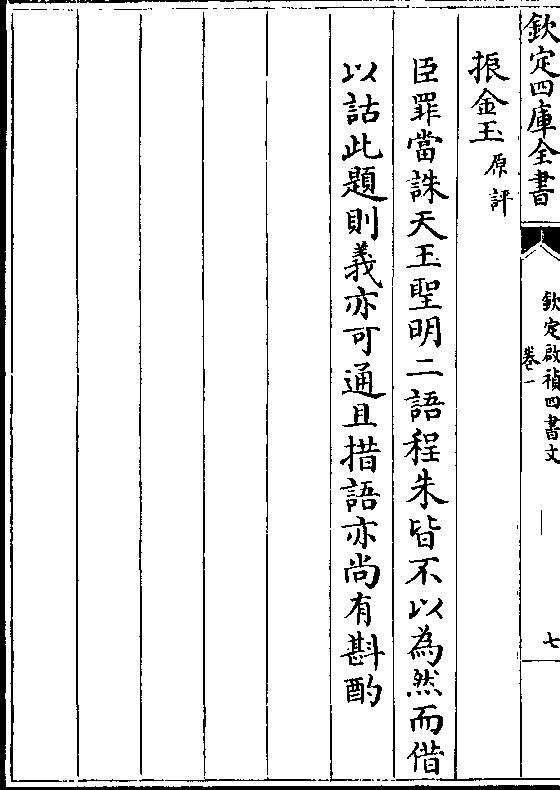 欽定四庫全書
欽定啟禎四書文
卷一
七
振金玉原評
臣罪當誅天王聖明二語程朱皆不以為然而借
以詁此題則義亦可通且措語亦尚有斟酌